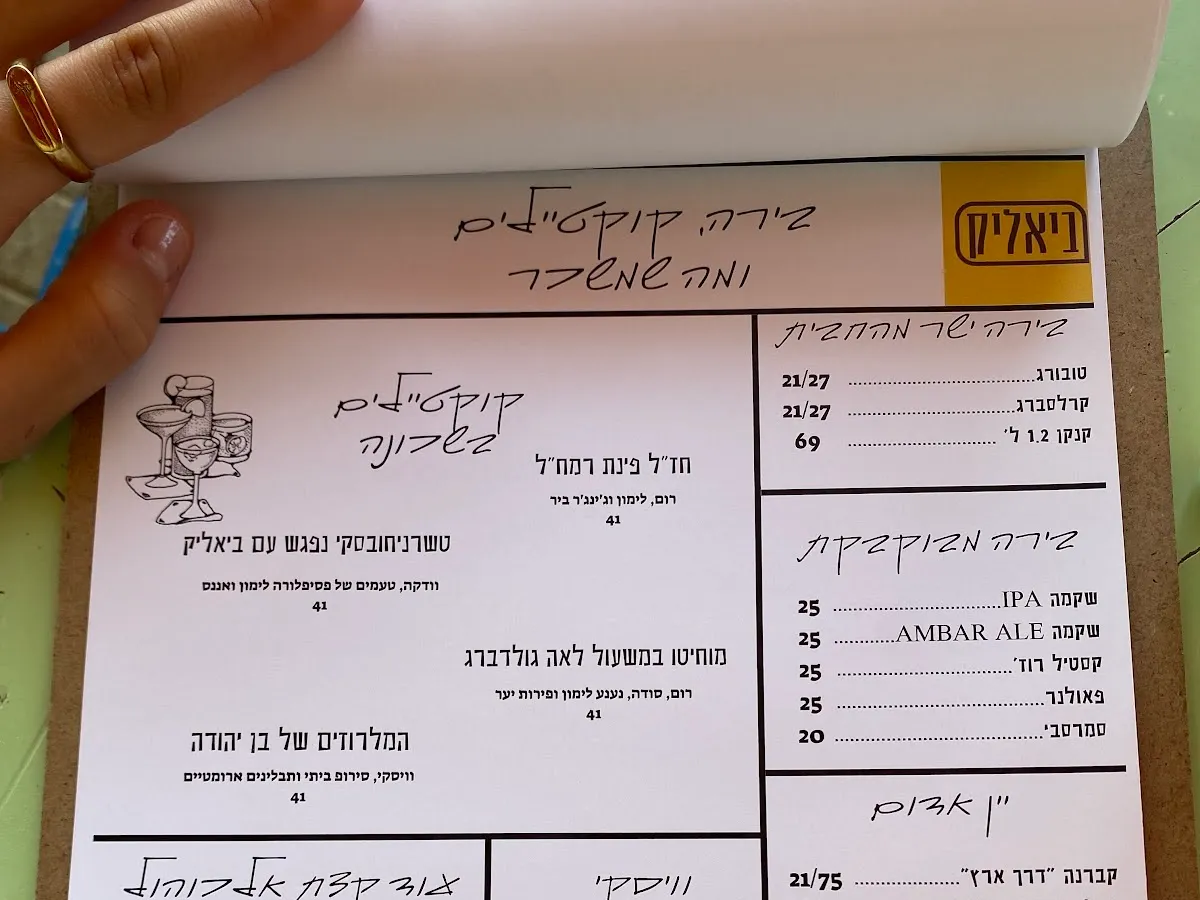 ביאליק
בירה, קוקטיילים
ומה שמשכר
קוקטיילים
בשכונה
חז"ל פינת רמח"ל
רום, לימון וג'ינג'ר ביר
41
טשרניחובסקי נפגש עם ביאליק
וודקה, טעמים של פסיפלורה לימון ואננס
41
מוחיטו במשעול לאה גולדברג
רום, סודה, נענע לימון ופירות יער
41
המלרוזים של בן יהודה
וויסקי, סירופ ביתי ותבלינים ארומטיים
41
בירה ישר מהחבית
טובורג 21/27
קרלסברג 21/27
קנקן 1.2 ל' 69
בירה מבוקבקת
שקמה IPA 25
שקמה AMBAR ALE 25
קסטיל רוז' 25
פאולנר 25
סמרסבי 20
יין אדום
קברנה "דרך ארץ" 21/75
וויסקי
עוד קצת אלכוהול